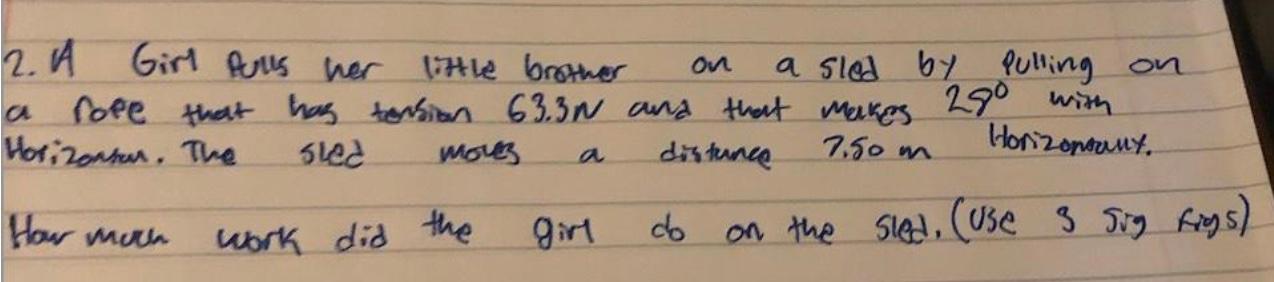 2. A Girl Pulls her little brother on a sled by Pulling on
a rope that has tension 63.3N and that makes with
Horizontan. The sled moves a distance 7.50 m Horizontally.
How much work did the girl do on the sled. (Use 3 sig figs)